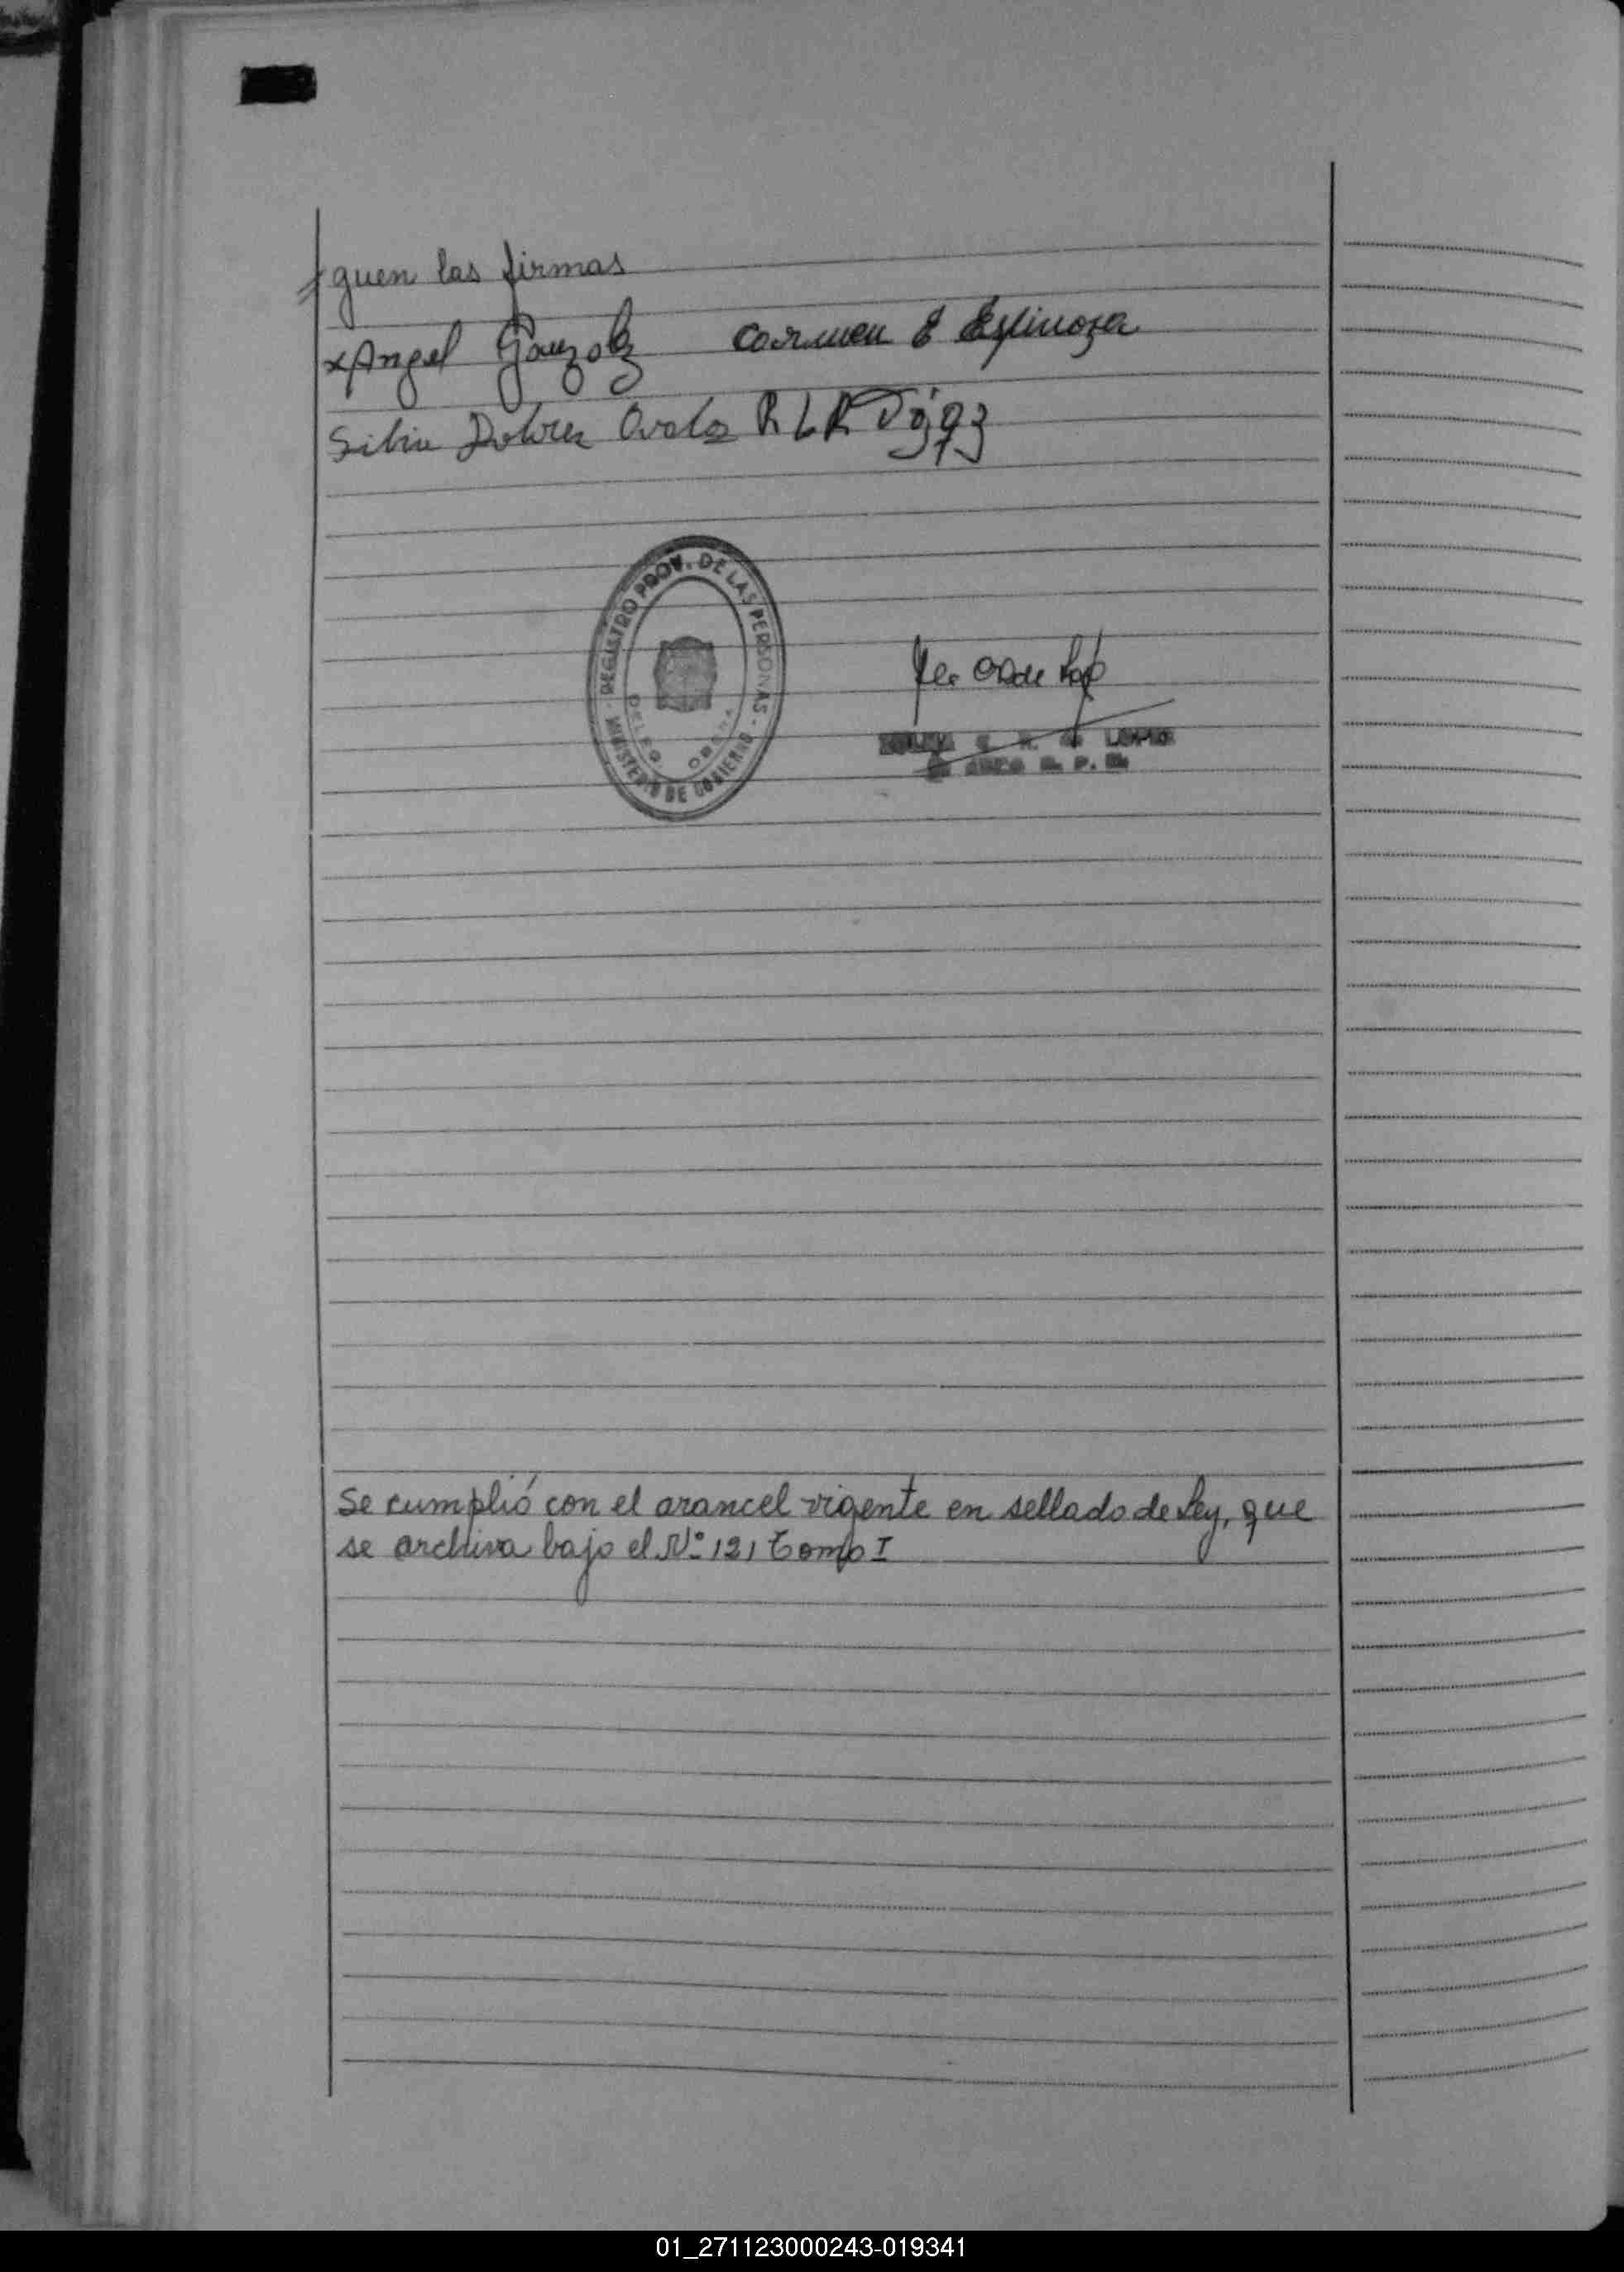 guen las firmas
Angel Gonzalez Carmen E Espinoza
Silvia Dolores Avalos R L R
REGISTRO PROV. DE LAS PERSONAS - MINISTERIO DE GOBIERNO -
DELEG. OBERA
LOPEZ
Se cumplió con el arancel vigente en sellado de Ley, que
se archiva bajo el Nº 121 Tomo I
01_271123000243-019341